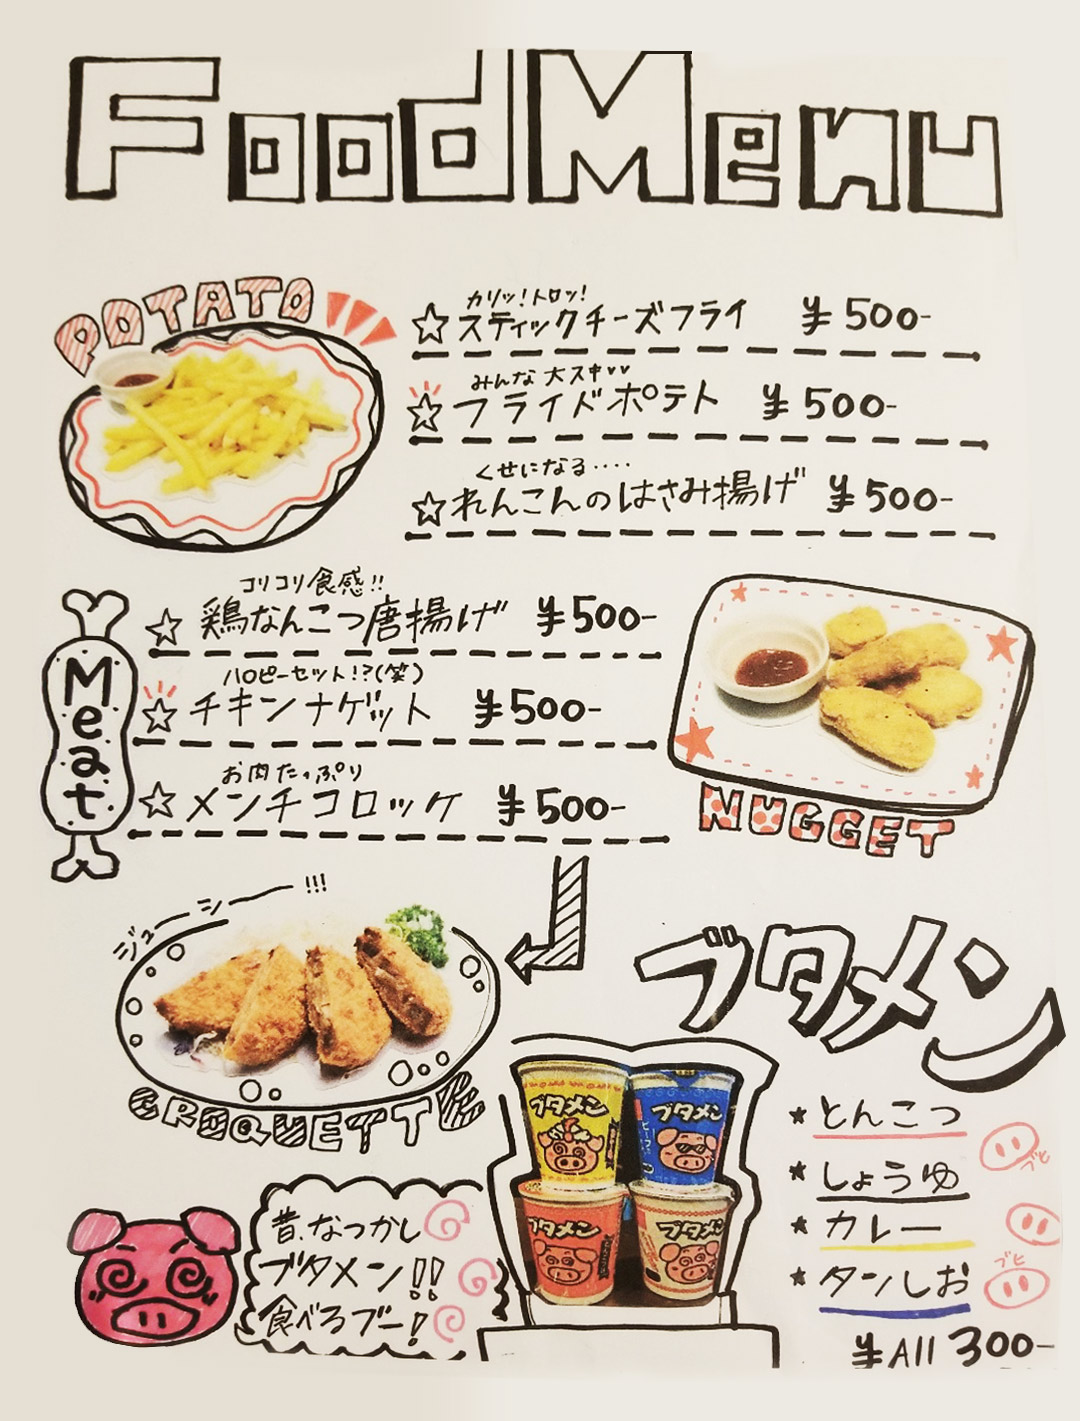 Food Menu
POTATO
カリッ!トロッ!
☆スティックチーズフライ ¥500-
みんな大スキ♥♥
☆フライドポテト ¥500-
くせになる‥‥
☆れんこんのはさみ揚げ ¥500-
Meat
コリコリ食感!!
☆鶏なんこつ唐揚げ ¥500-
ハ〇ピーセット!?(笑)
☆チキンナゲット ¥500-
お肉たっぷり
☆メンチコロッケ ¥500-
NUGGET
ジューシー!!!
CROQUETTE
ブタメン
ブタメン
ブタメン
ブタメン
ブタメン
★とんこつ
★しょうゆ
★カレー
★タンしお
ブヒ
ブヒ
¥All 300-
昔、なつかし
ブタメン!!
食べるブー!